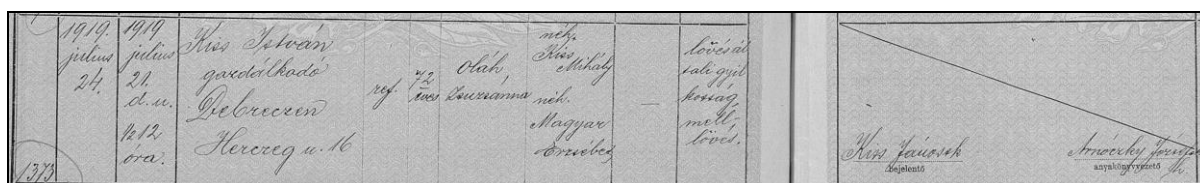 1373
1919.
július
24.
1919
július
21.
d. u.
1/2 12
óra.
Kiss István
gazdálkodó
Debreczen
Herczeg u. 16
ref.
72
éves
Oláh
Zsuzsánna
néh.
Kiss
Mihály
néh.
Magyar
Erzsébet
—
lövés ál
tali gyil
kosság,
mell-
lövés.
Kiss Jánosek
bejelentő
anyakönyvvezető